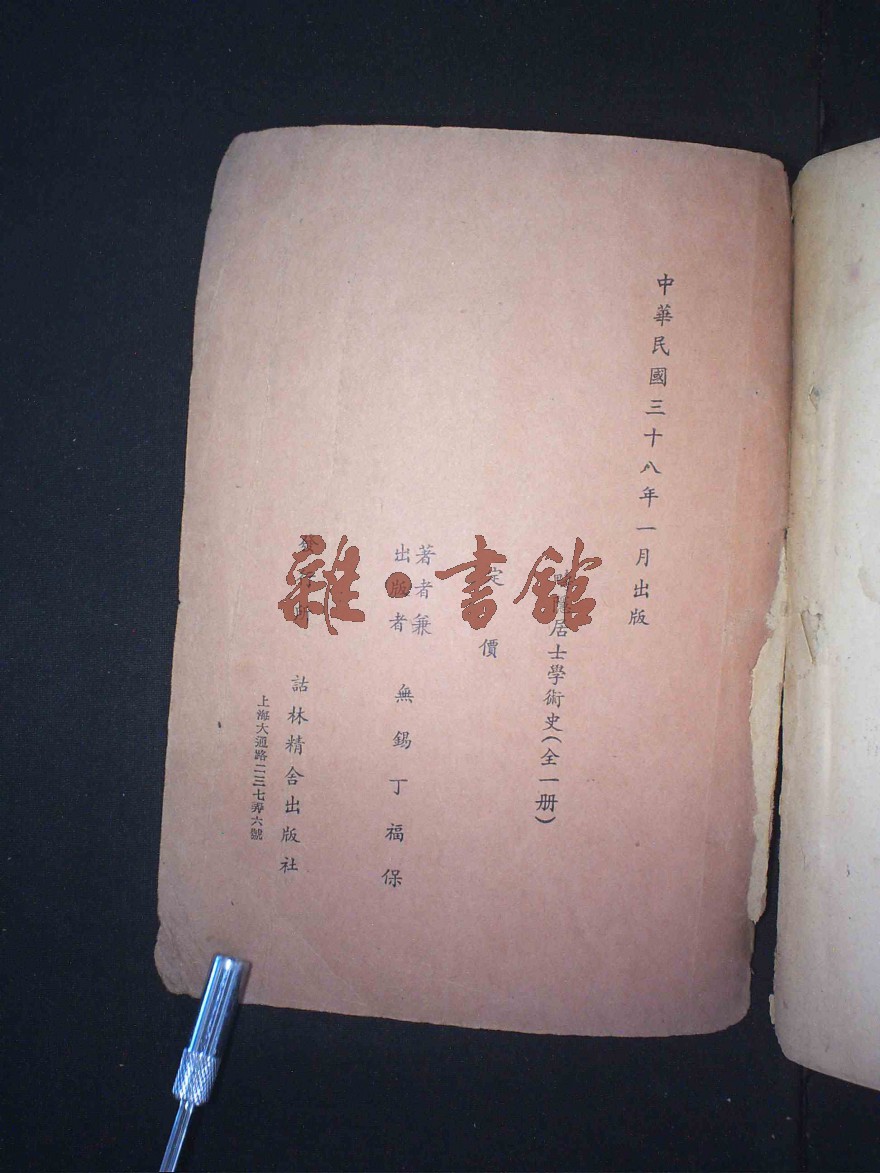 中華民國三十八年一月出版
疇隱居士學術史(全一册)
定價
著者兼
出版者
無錫丁福保
發行所
詁林精舍出版社
上海大通路二三七弄六號
雜·書館